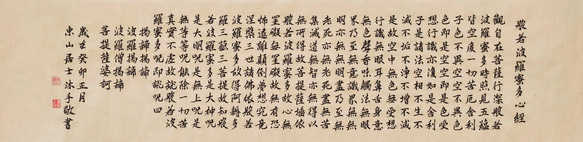 般若波羅蜜多心經
觀自在菩薩行深般若
波羅蜜多時照見五蘊
皆空度一切苦厄舍利
子色不異空空不異色
色即是空空即是色受
想行識亦復如是舍利
子是諸法空相不生不
滅不垢不淨不增不減
是故空中無色無受想
行識無眼耳鼻舌身意
無色聲香味觸法無眼
界乃至無意識界無無
明亦無無明盡乃至無
老死亦無老死盡無苦
集滅道無智亦無得以
無所得故菩提薩埵依
般若波羅蜜多故心無
罣礙無罣礙故無有恐
怖遠離顛倒夢想究竟
涅槃三世諸佛依般若
波羅蜜多故得阿耨多
羅三藐三菩提故知般
若波羅蜜多是大神呪
是大明呪是無上呪是
無等等呪能除一切苦
真實不虛故說般若波
羅蜜多呪即說呪曰
揭諦揭諦
波羅揭諦
波羅僧揭諦
菩提薩婆訶
歲在癸卯正月
山居士沐手敬書